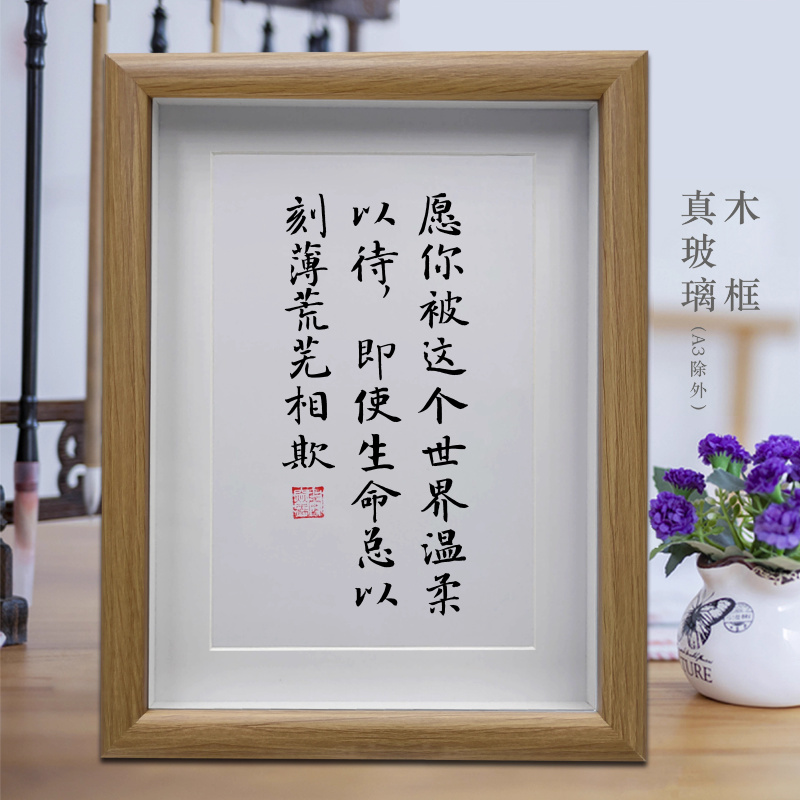 愿你被这个世界温柔
以待，即使生命总以
刻薄荒芜相欺
木框
真玻璃(A3除外)
TURE